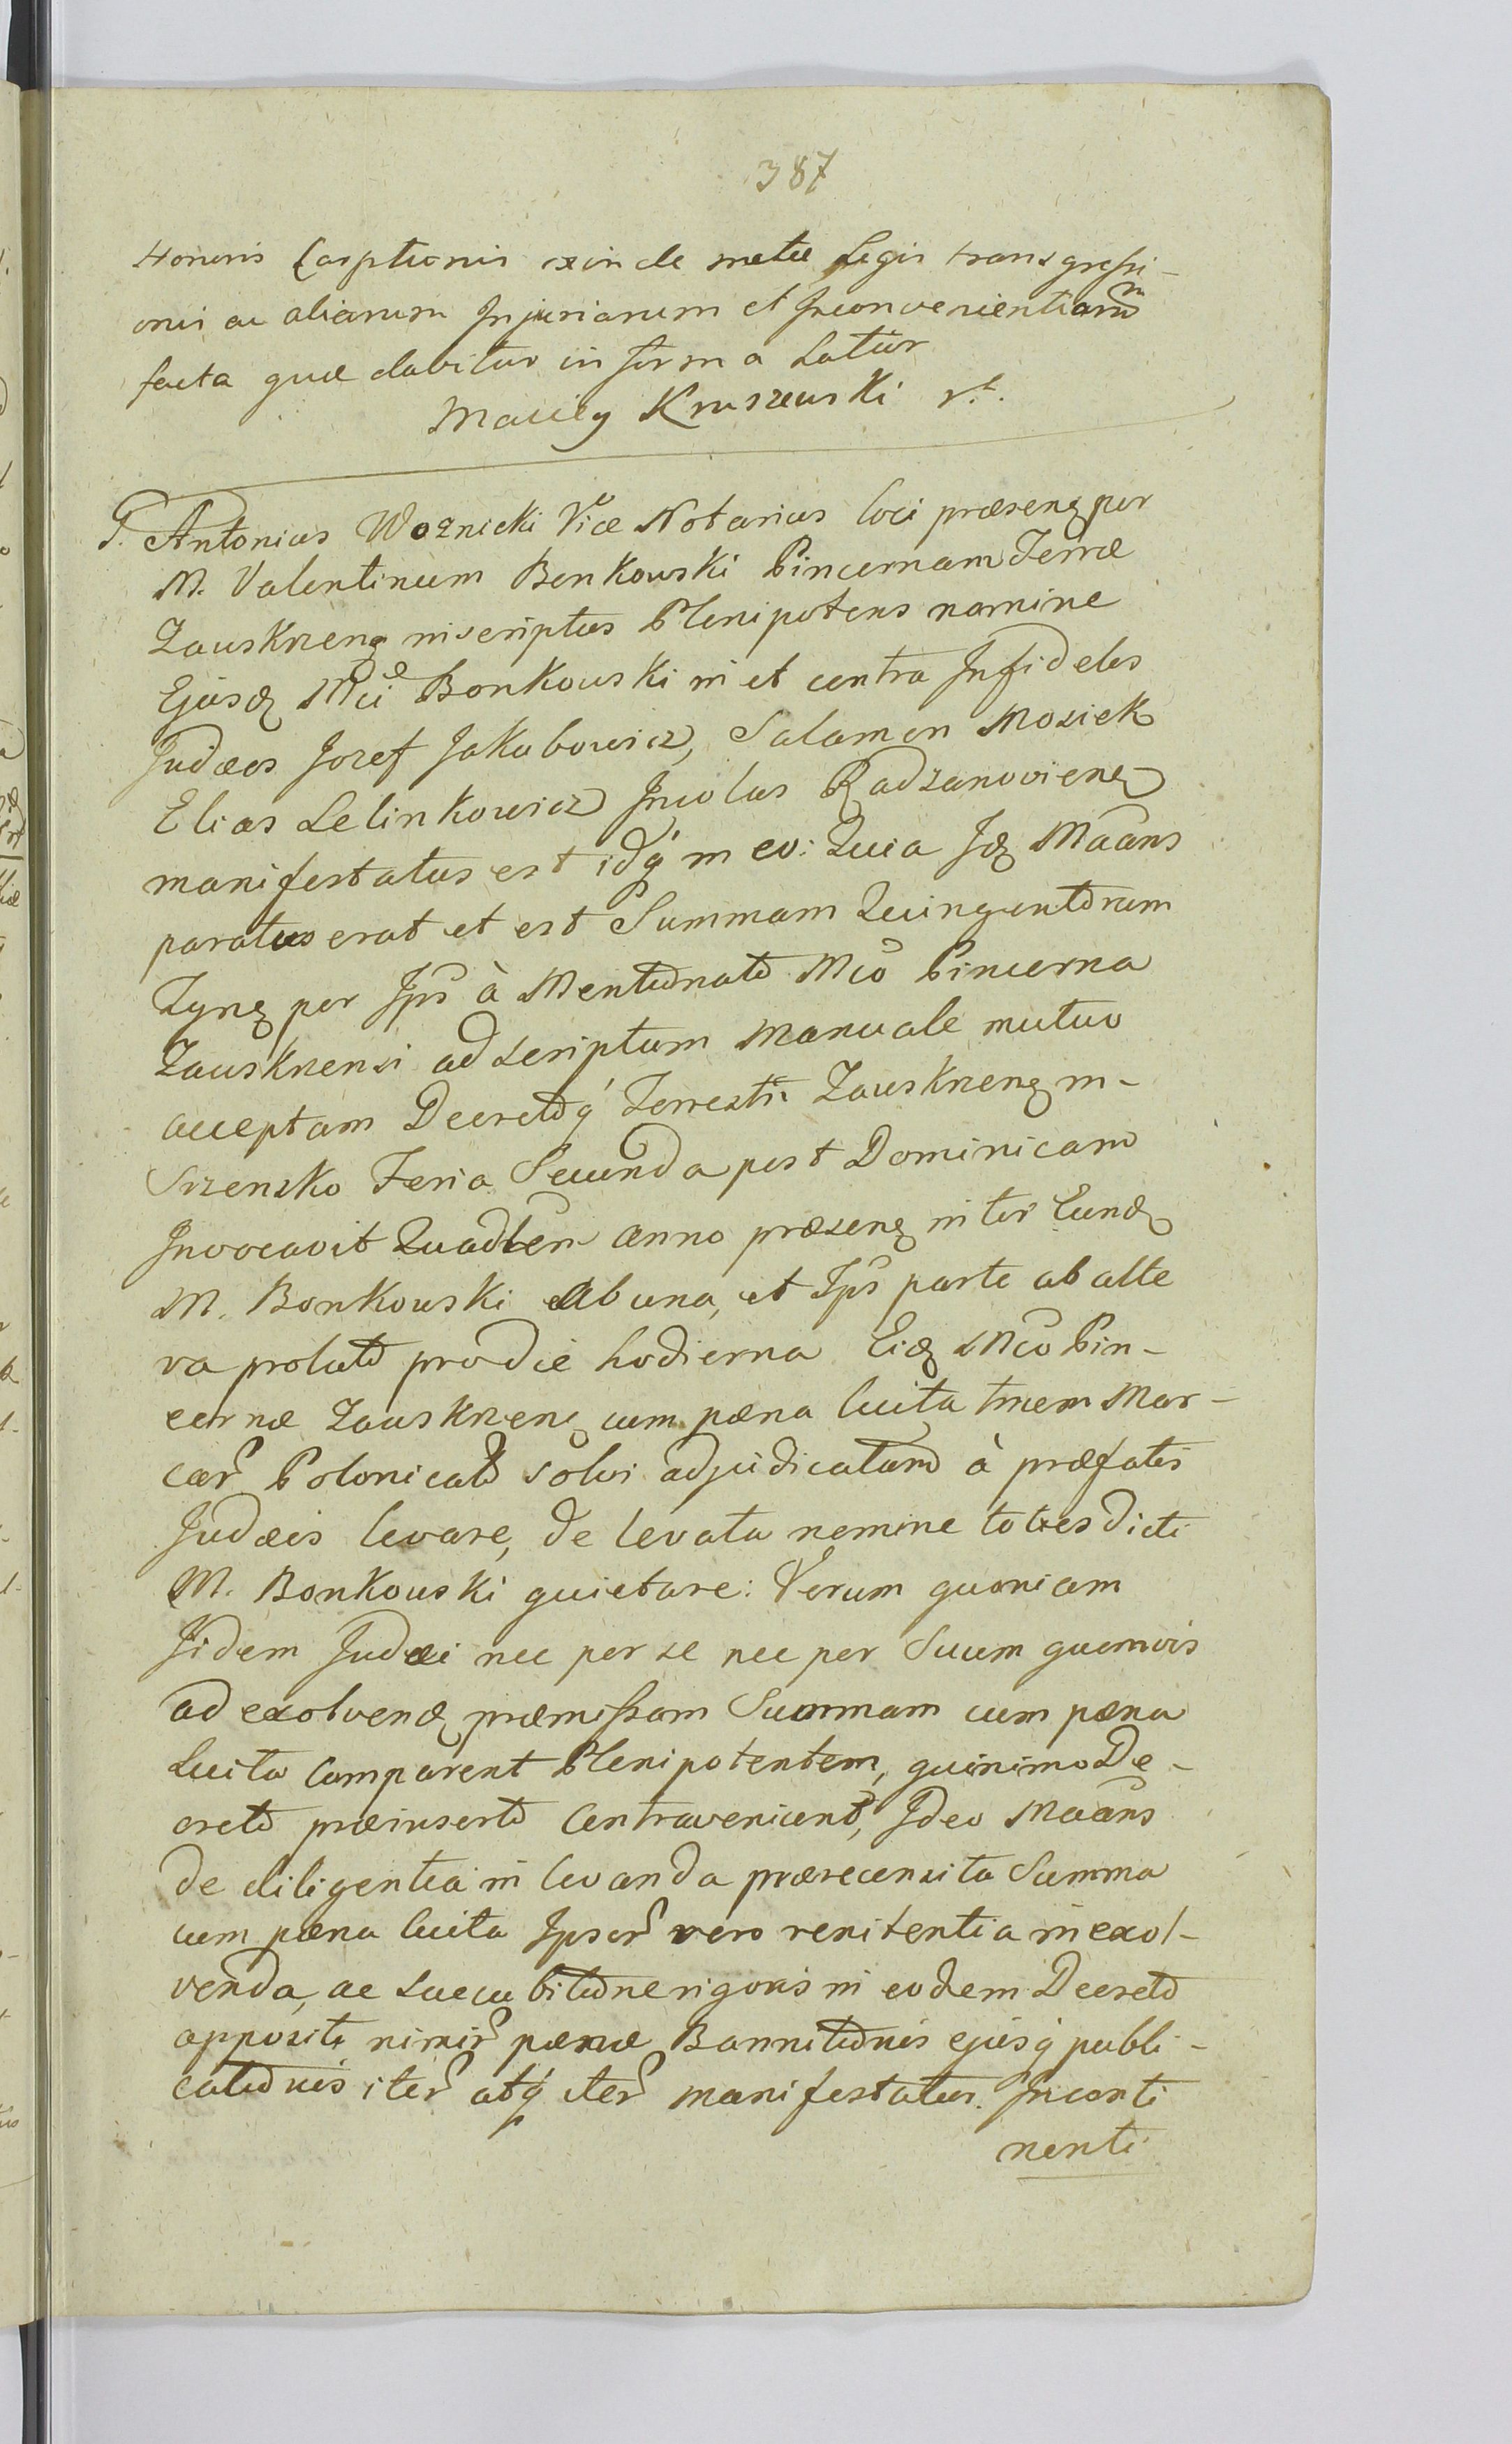 387
Honoris Carptionis exinde metu Legis transgressi-
onis ac aliarum Injuriarum et Inconvenientiarum
facta quæ dabitur in forma Latior
Maciey Kruszewski rt.
G. Antonius Woznicki Vice Notarius loci præsenꝫ per
M. Valentinum Bonkowski Pincernam Terræ
Zauskrzenꝫ inscriptus Plenipotens nomine
Ejusdꝫ Mci Bonkowski in et contra Infideles
Judæos Jozef Jakubowicz, Salamon Mosiek
Elias Lelinkowicz Incolas Radzanovienꝫ
manifestatus est idq́ in eo: Quia Idꝫ Maans
paratus erat et est Summam Quingentorum
Tynꝫ per Ips à Mentionato Mco Pincerna
Zauskrzensi ad Scriptum Manuale mutuo
acceptam Decretoq́ Terrestri Zauskrzenꝫ in-
Srzensko Feria Secunda post Dominicam
Invocavit Quadlem anno præsenꝫ inter Eundꝫ
M. Bonkowski ab una, et Ips parte ab alte
ra prolato pro die hodierna Eidꝫ Mco Pin-
cernæ Zauskrzenꝫ cum pæna luita trium Mar-
car Polonicalo solvi adjudicatam à præfatis
Judæis levare, de levata nomine toties dicti
M. Bonkowski quietare: Verum quoniam
Iidem Judæi nec per se nec per Suum quemvis
ad exolvendꝫ præmissam Summam cum pæna
Luita Comparent Plenipotentem, quinimo De-
creto præinserto Contraveniunt, Ideo Maans
de diligentia in levanda prærecensita Summa
cum pæna luita Ipsor vero renitentia in exol-
venda, ac Succubitione rigoris in eodem Decreto
appositi nimir pænæ Bannitionis ejusq́ publi-
cationis iter atq́ iter manifestatur. Inconti
nenti